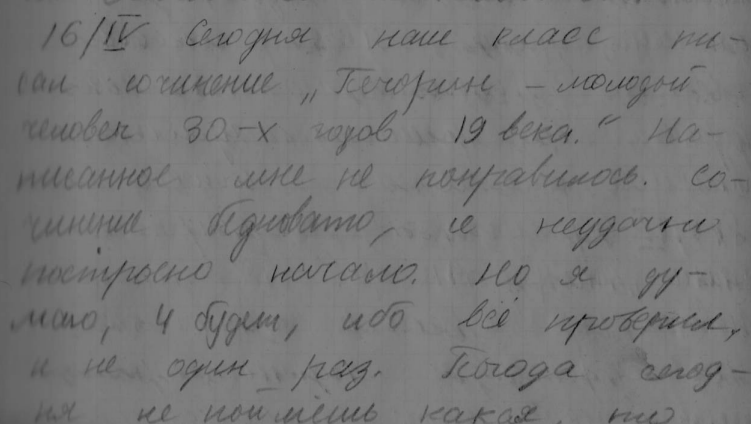 16/IV. Сегодня наш класс пи-
сал сочинение „Печорин – молодой
человек 30-х годов 19 века.“ На-
писанное мне не понравилось. Со-
чинение бедновато, и неудачно
построено начало. Но я ду-
маю, 4 будет, ибо всё проверил,
и не один раз. Погода сегод-
ня не поймёшь какая, то